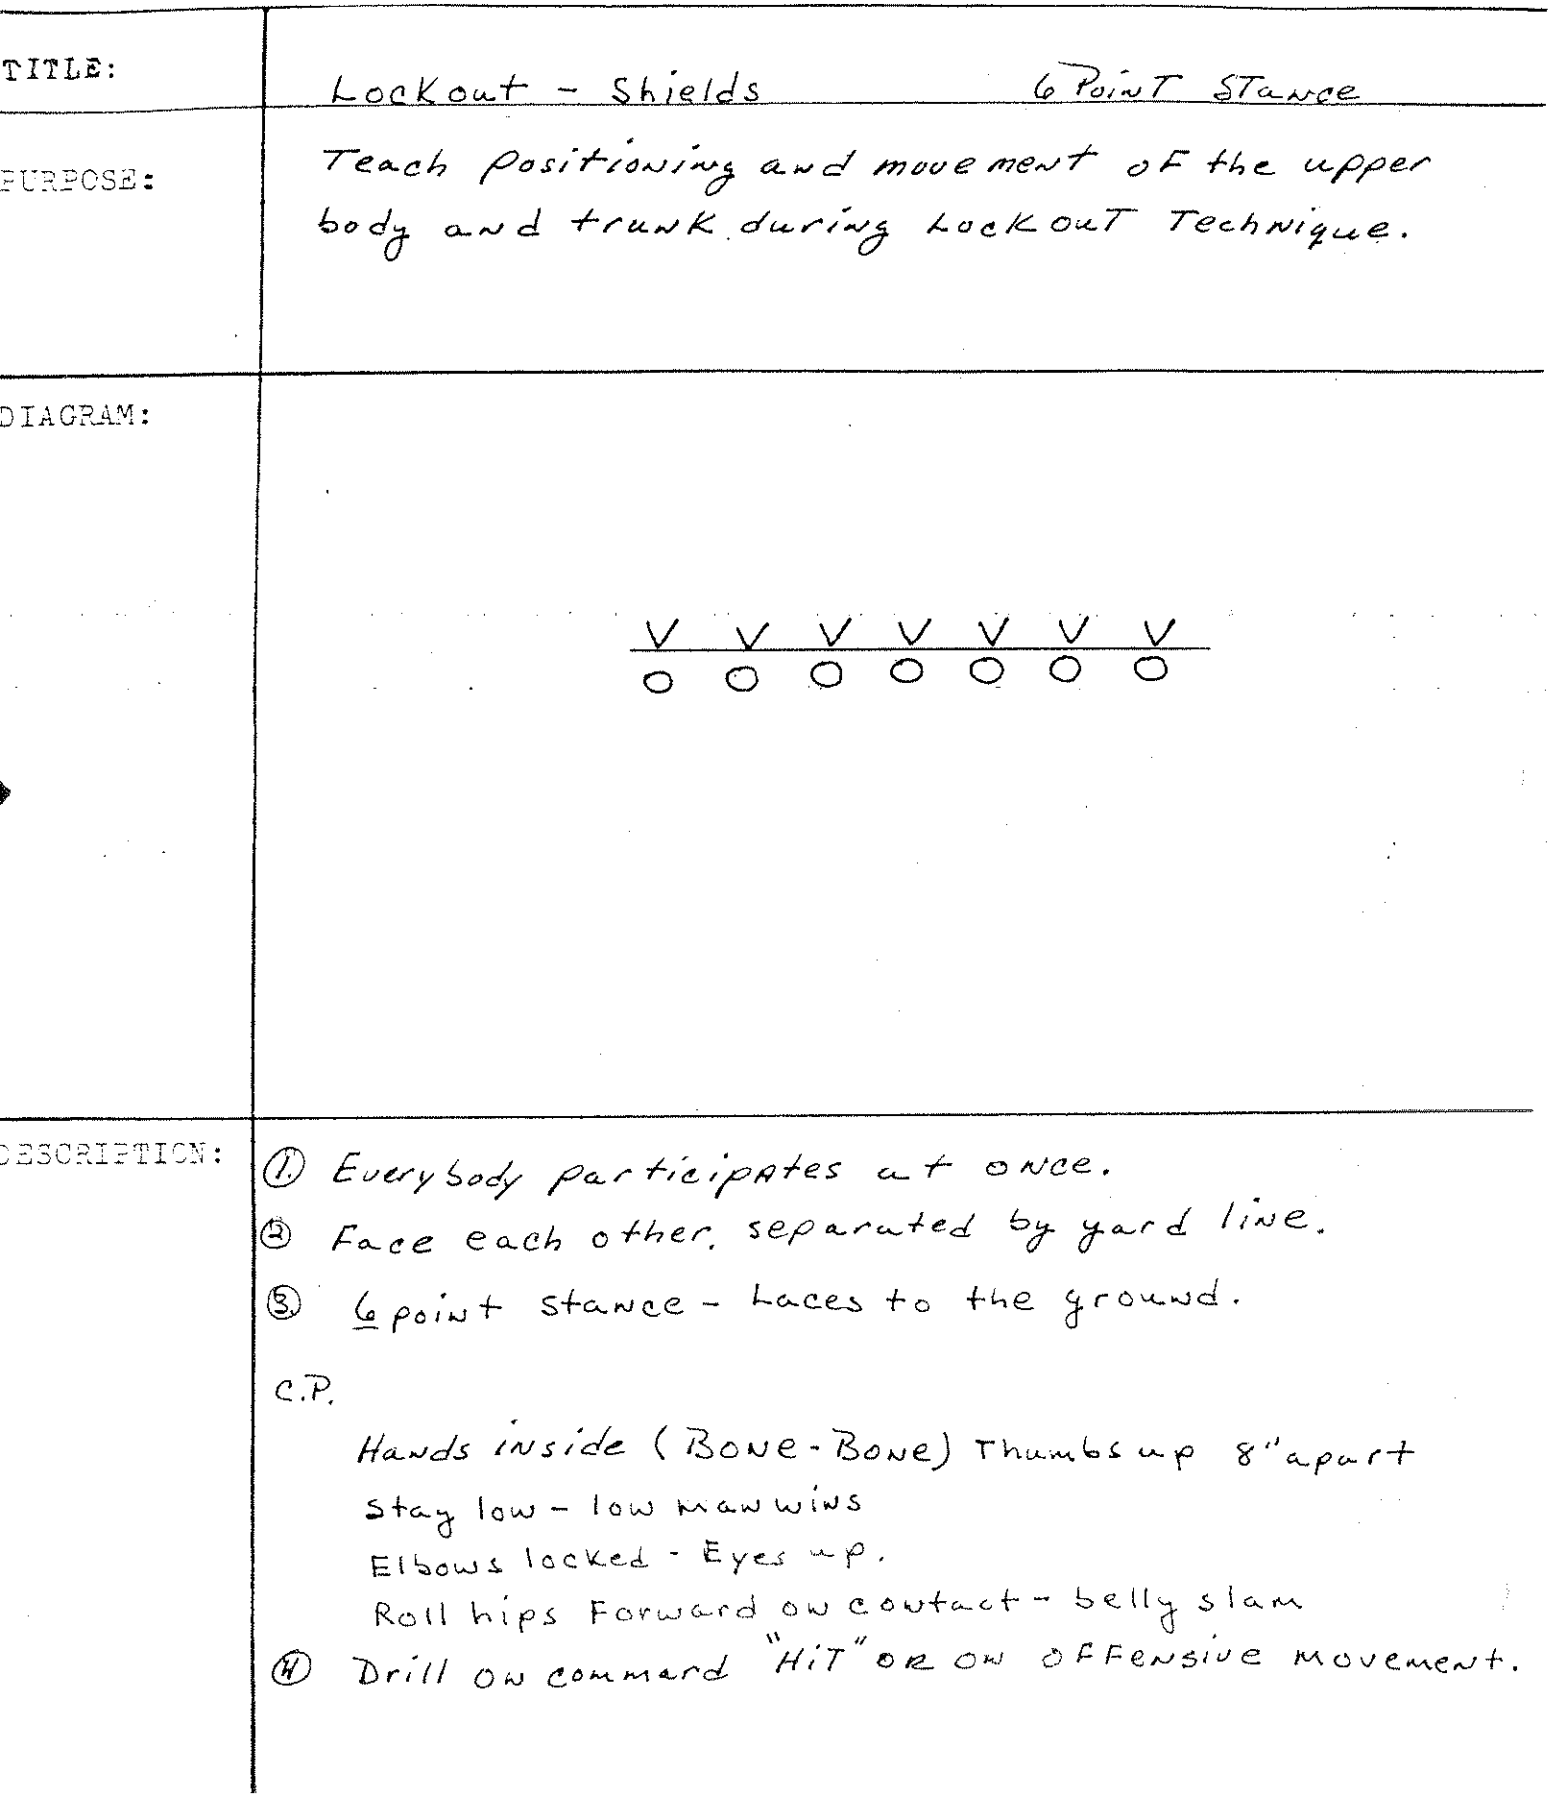 TITLE:
Lockout - Shields 6 Point Stance
PURPOSE:
Teach positioning and movement of the upper
body and trunk during Lockout Technique.
DIAGRAM:
V V V V V V V
O O O O O O O
DESCRIPTION:
1. Everybody participates at once.
2 Face each other, separated by yard line.
3. 6 point stance - Laces to the ground.
C.P.
Hands inside (Bone-Bone) Thumbs up 8" apart
Stay low - low man wins
Elbows locked - Eyes up.
Roll hips Forward on contact - belly slam
4 Drill on command "HiT" OR ON OFFENSIVE MOVEMENT.